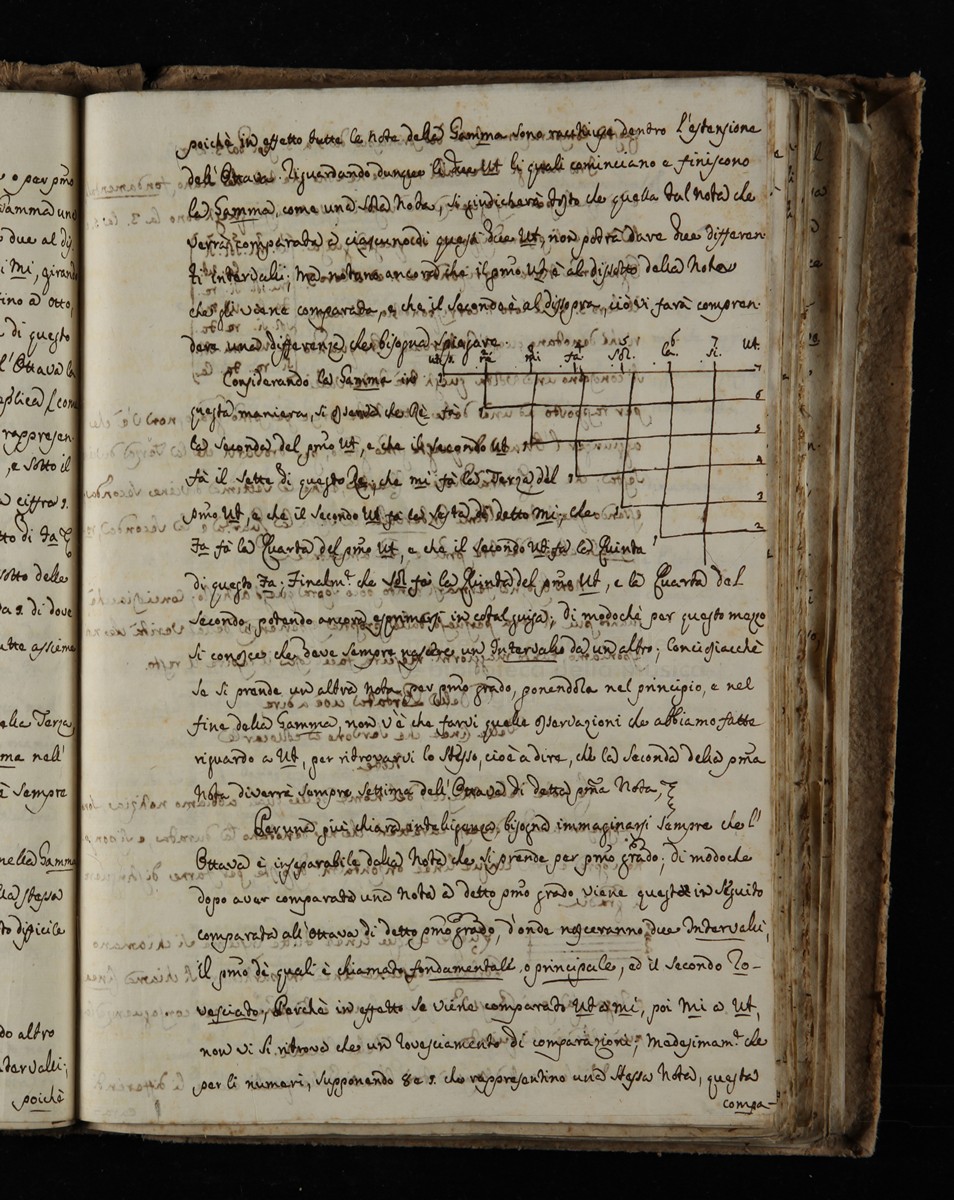 poichè in effetto tutte le note della Gamma sono racchiuse dentro l'estensione
dell'Ottava. Riguardando dunque li due Ut li quali cominciano e finiscono
la Gamma, come una sola Nota, si giudicherà tosto che quella tal Nota che
verrà comparata à ciascuno di questi due Ut, non potrà dare due differen-
ti intervalli; Mà notare ancora che il pmo Ut è al dissotto della Nota
che gli viene comparata, e che il secondo è al dissopra, ciò vi farà compren-
dere una differenza che bisogna spiegare.
ut re mi fa sol la 6 si 7 Ut
Considerando la Gamma in
questa maniera, si osserva che Re fà
la seconda del pmo Ut, e che il secondo Ut
fà il sette di questo Re, che mi fà la Terza del
pmo Ut, e che il secondo Ut fa la sesta di detto Mi; che
Fa fà la Quarta del pmo Ut, e che il secondo Ut fa la Quinta
7
6
5
4
3
2
di questo Fa; Finalmte che Sol fà la Quinta del pmo Ut, e la Quarta del
secondo, potendo ancora esprimersi in cotal guisa; di modochè per questo mezo
si conosce che deve sempre nascere un Intervallo da un altro; Conciosiacchè
se si prende un altra nota per pmo grado, ponendola nel principio, e nel
fine della Gamma, non v'è che farvi quelle osservazioni che abbiamo fatte
riguardo a Ut, per ritrovarvi lo stesso, cioè a dire, che la seconda della pma
Nota diverrà sempre settima dell'Ottava di detta pma Nota,
Per una più chiara intelligenza, bisogna immaginarsi sempre che l'
Ottava è inseparabile dalla Nota che si prende per pmo grado; di modoche
dopo aver comparata una Nota à detto pmo grado viene questa in seguito
comparata all'Ottava di detto pmo grado, d'onde nasceranno due Intervalli,
il pmo de quali è chiamato fondamentale, o principale, ed il secondo Ro-
vesciato, Perchè in effetto se viene comparato Ut a mi, poi Mi a Ut,
non vi si ritrova che un rovesciamento di comparazione; Medesimamte che
per li numeri, supponendo 8 e 1. che rappresentino una stessa Nota, questa
compa-
o per pmo
Gamma una
due al di
Mi, giran
fino à otto,
di questo
l'Ottava
rappresen
e sotto il
cifra 1.
tto di Fa
sotto della
da 1. di dove
utte assieme
ella Terza
ma nell'
è sempre
nella Gamma
la stessa
to difficile
do altro
ntervalli;
poichè